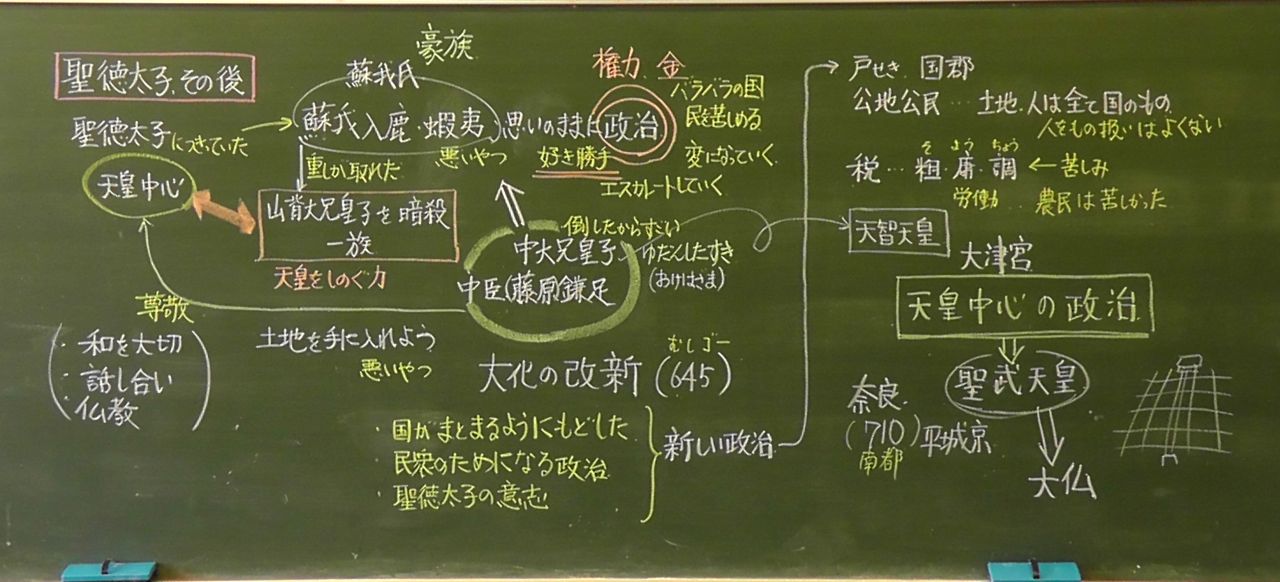 聖徳太子、その後
聖徳太子につきていた
天皇中心
豪族
蘇我氏
蘇我入鹿・蝦夷
悪いやつ
重しが取れた
山背大兄皇子を暗殺
一族
天皇をしのぐ力
思いのままに政治
好き勝手
権力 金
バラバラの国
民を苦しめる
変になっていく
エスカレートしていく
倒したからすごい
中大兄皇子
中臣(藤原)鎌足
ゆだんしたすき
(おけはざま)
尊敬
・和を大切
・話し合い
・仏教
土地を手に入れよう
悪いやつ
むしゴー
大化の改新(645)
・国がまとまるようにもどした
・民衆のためになる政治
・聖徳太子の意志
新しい政治
戸せき 国郡
公地公民…土地、人は全て国のもの
人をもの扱いはよくない
そ よう ちょう
税…租・庸・調 ←苦しみ
労働 農民は苦しかった
天智天皇
大津宮
天皇中心の政治
聖武天皇
大仏
奈良
(710)平城京
南都